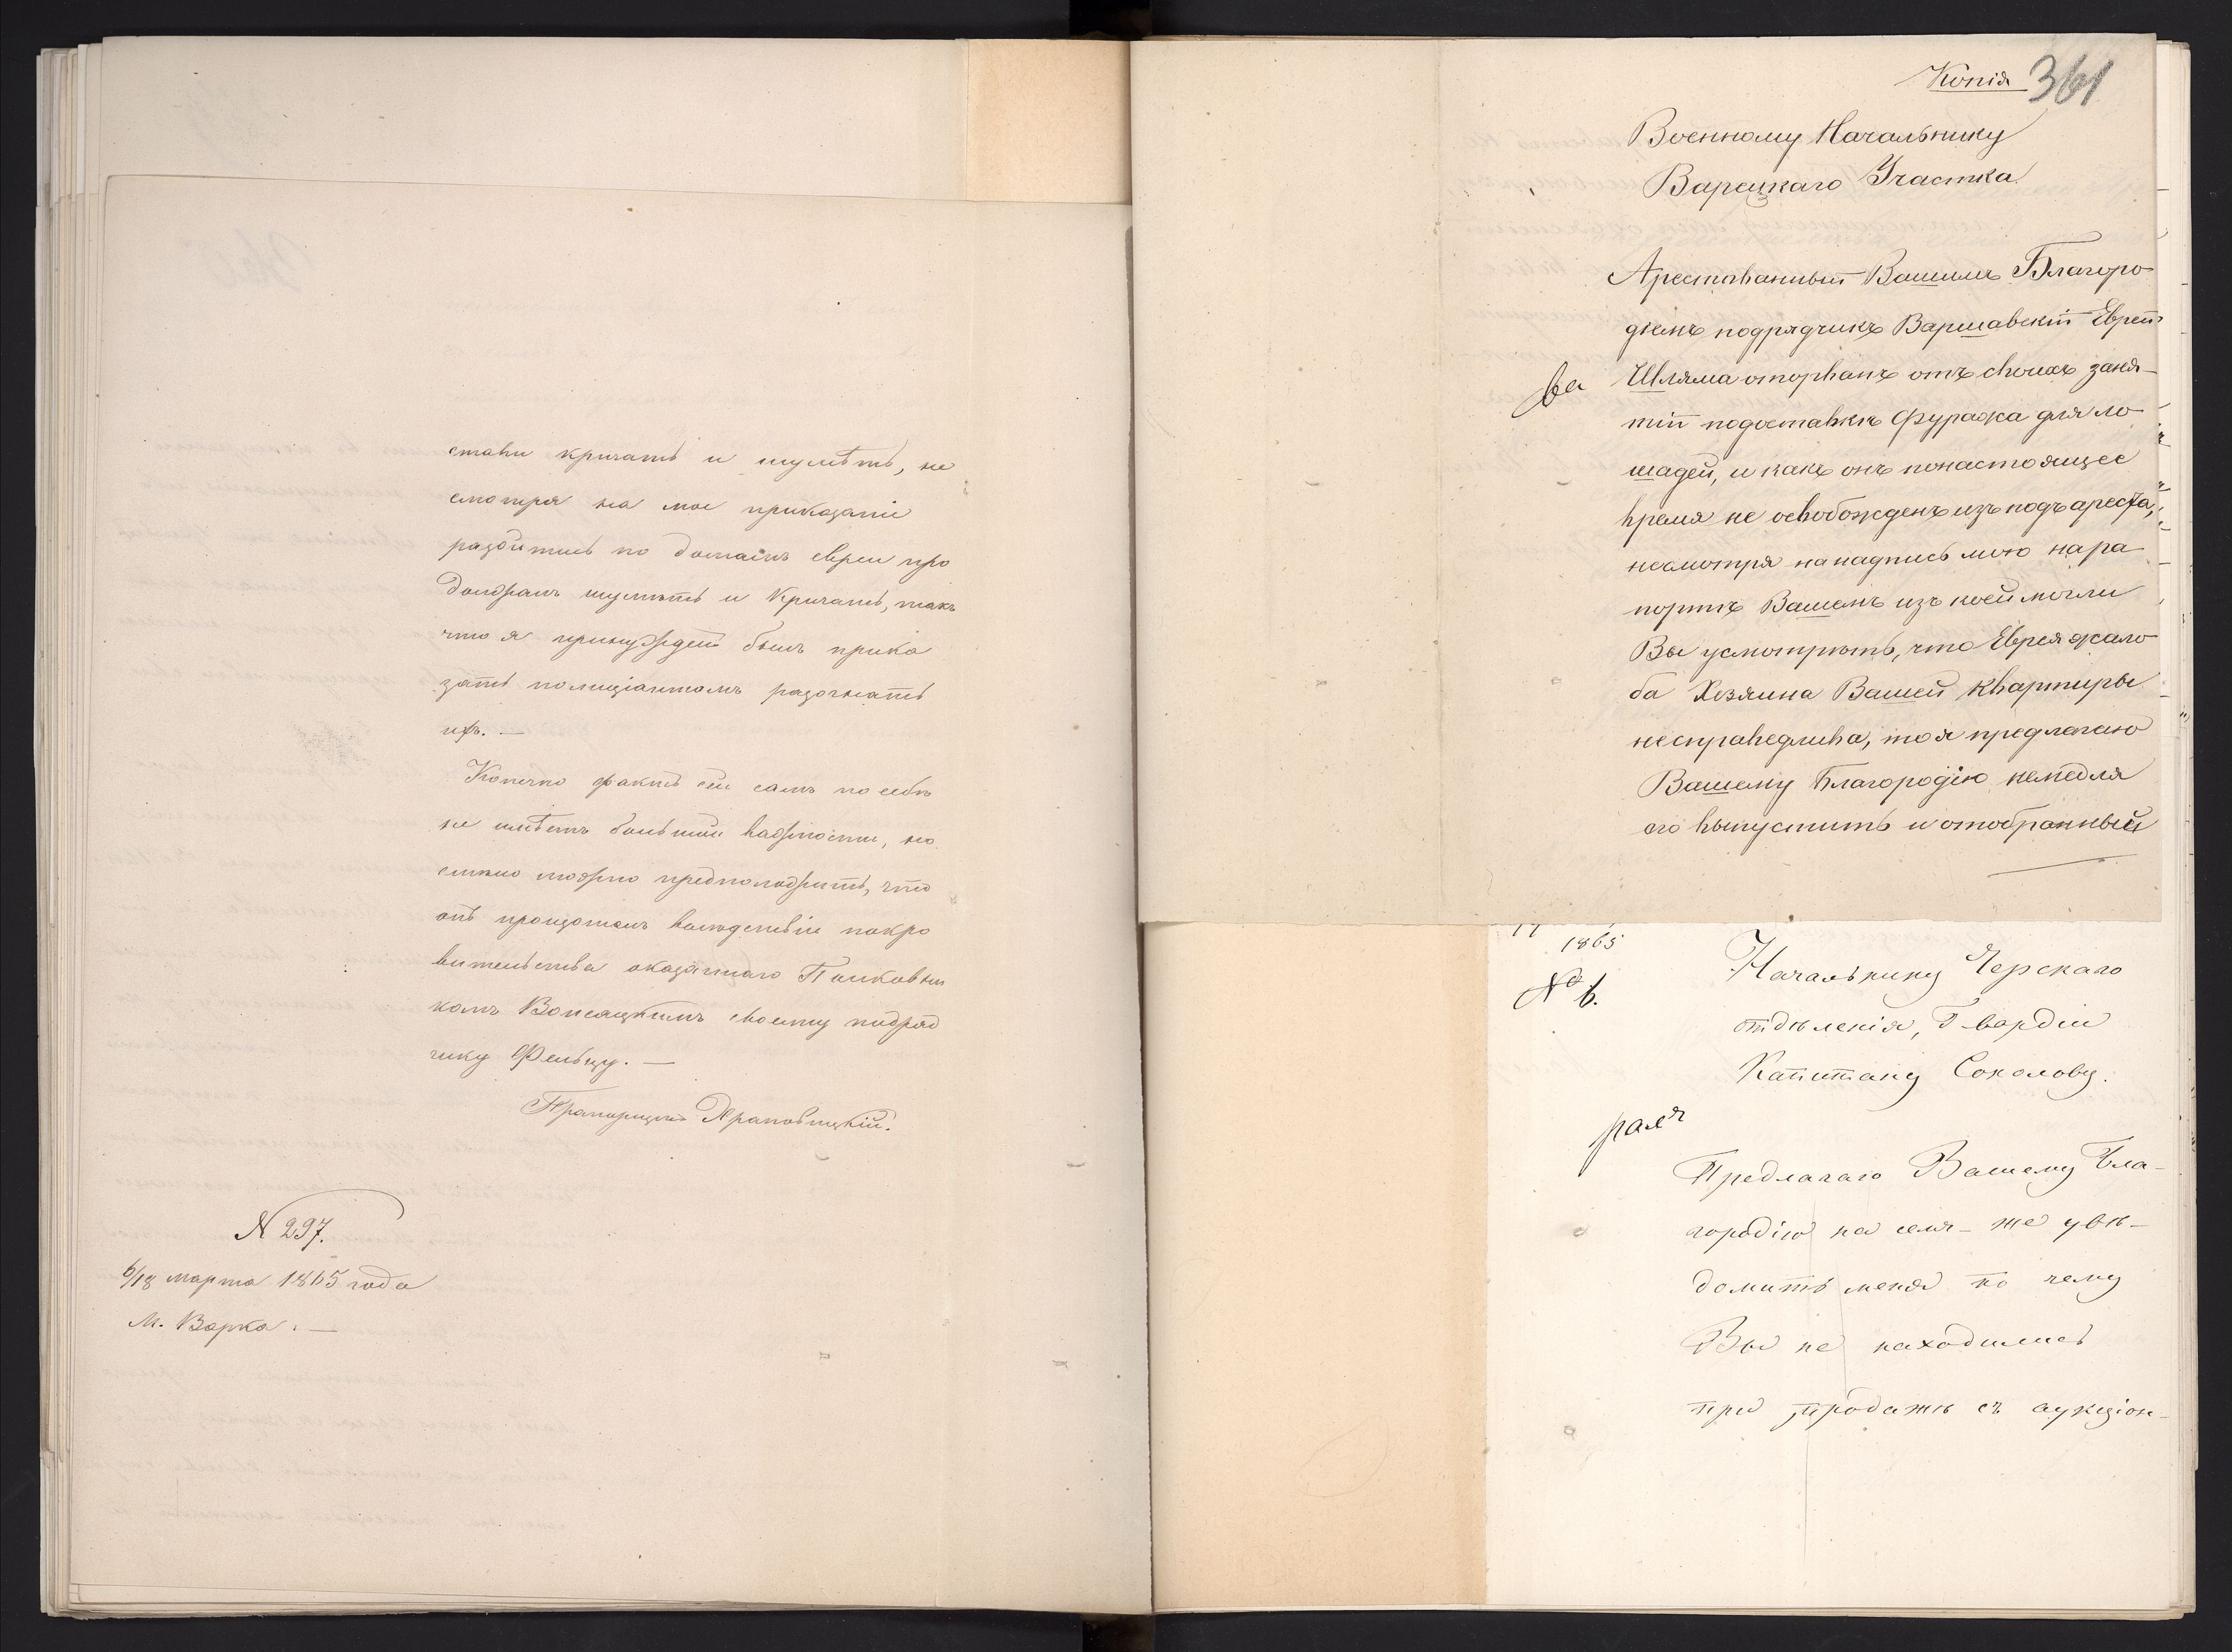 стали кричать и шумѣть, не
смотря на мое приказаніе
разойтись по домамъ евреи про
должали шумѣть и кричать, такъ
что я принужденъ былъ прика
зать полиціантамъ разогнать
ихъ. —
Конечно фактъ сей самъ по себѣ
не имѣетъ большой важности, но
смѣло можно предположить, что
онъ произошелъ вслѣдствіи покро
вительства оказаннаго Полковни
комъ Вонсяцкимъ своему подряд
чику Фельцу. —
Прапорщикъ Храповицкій.
N 297.
6/18 марта 1865 года
М. Варка. —
Копія 361
Военному Начальнику
Варецкаго Участка.
Арестованный Вашимъ Благоро
діемъ подрядчикъ Варшавскій Еврей
Шляма оторванъ отъ своихъ заня-
тій подоставкѣ Фуража для ло
шадей, и какъ онъ понастоящее
время не освобожденъ изъ подъ ареста,
несмотря на надпись мою на ра
портѣ Вашемъ изъ коей могли
Вы усмотрѣть, что Еврея жало
ба Хозяина Вашей квартиры
несправедлива, то я предлагаю
Вашему Благородію немедля
его выпустить и отобранный
1865
№ 6.
Начальнику Черскаго
отдѣленія, Гвардіи
Капитану Соколову.
Предлагаю Вашему Бла-
городію на семъ-же увѣ-
домить меня по чему
Вы не находились
при продажѣ съ аукціон-